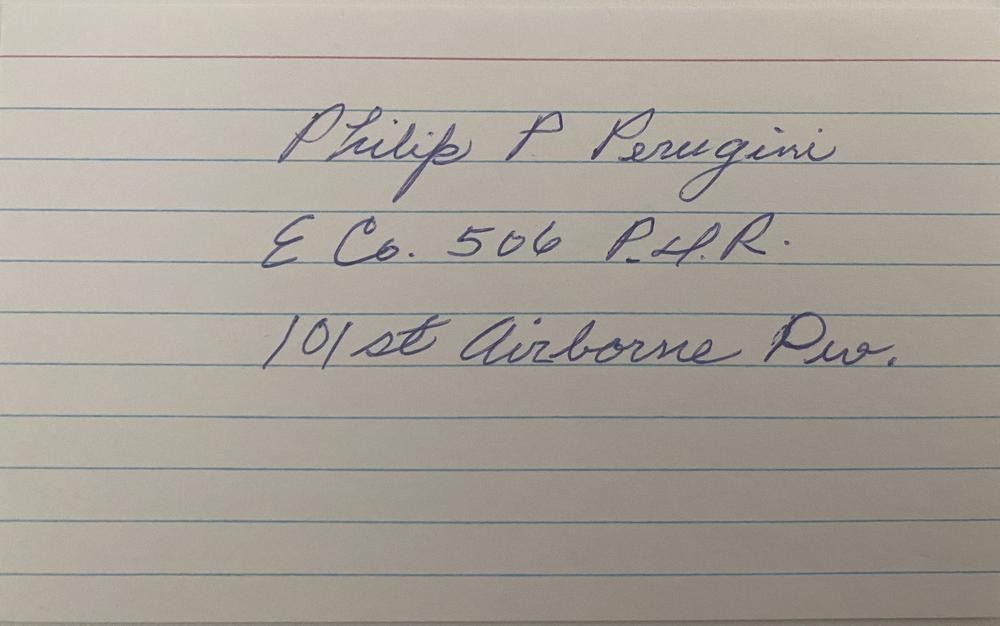 Philip P. Perugini
E Co. 506 P.I.R.
101st Airborne Div.